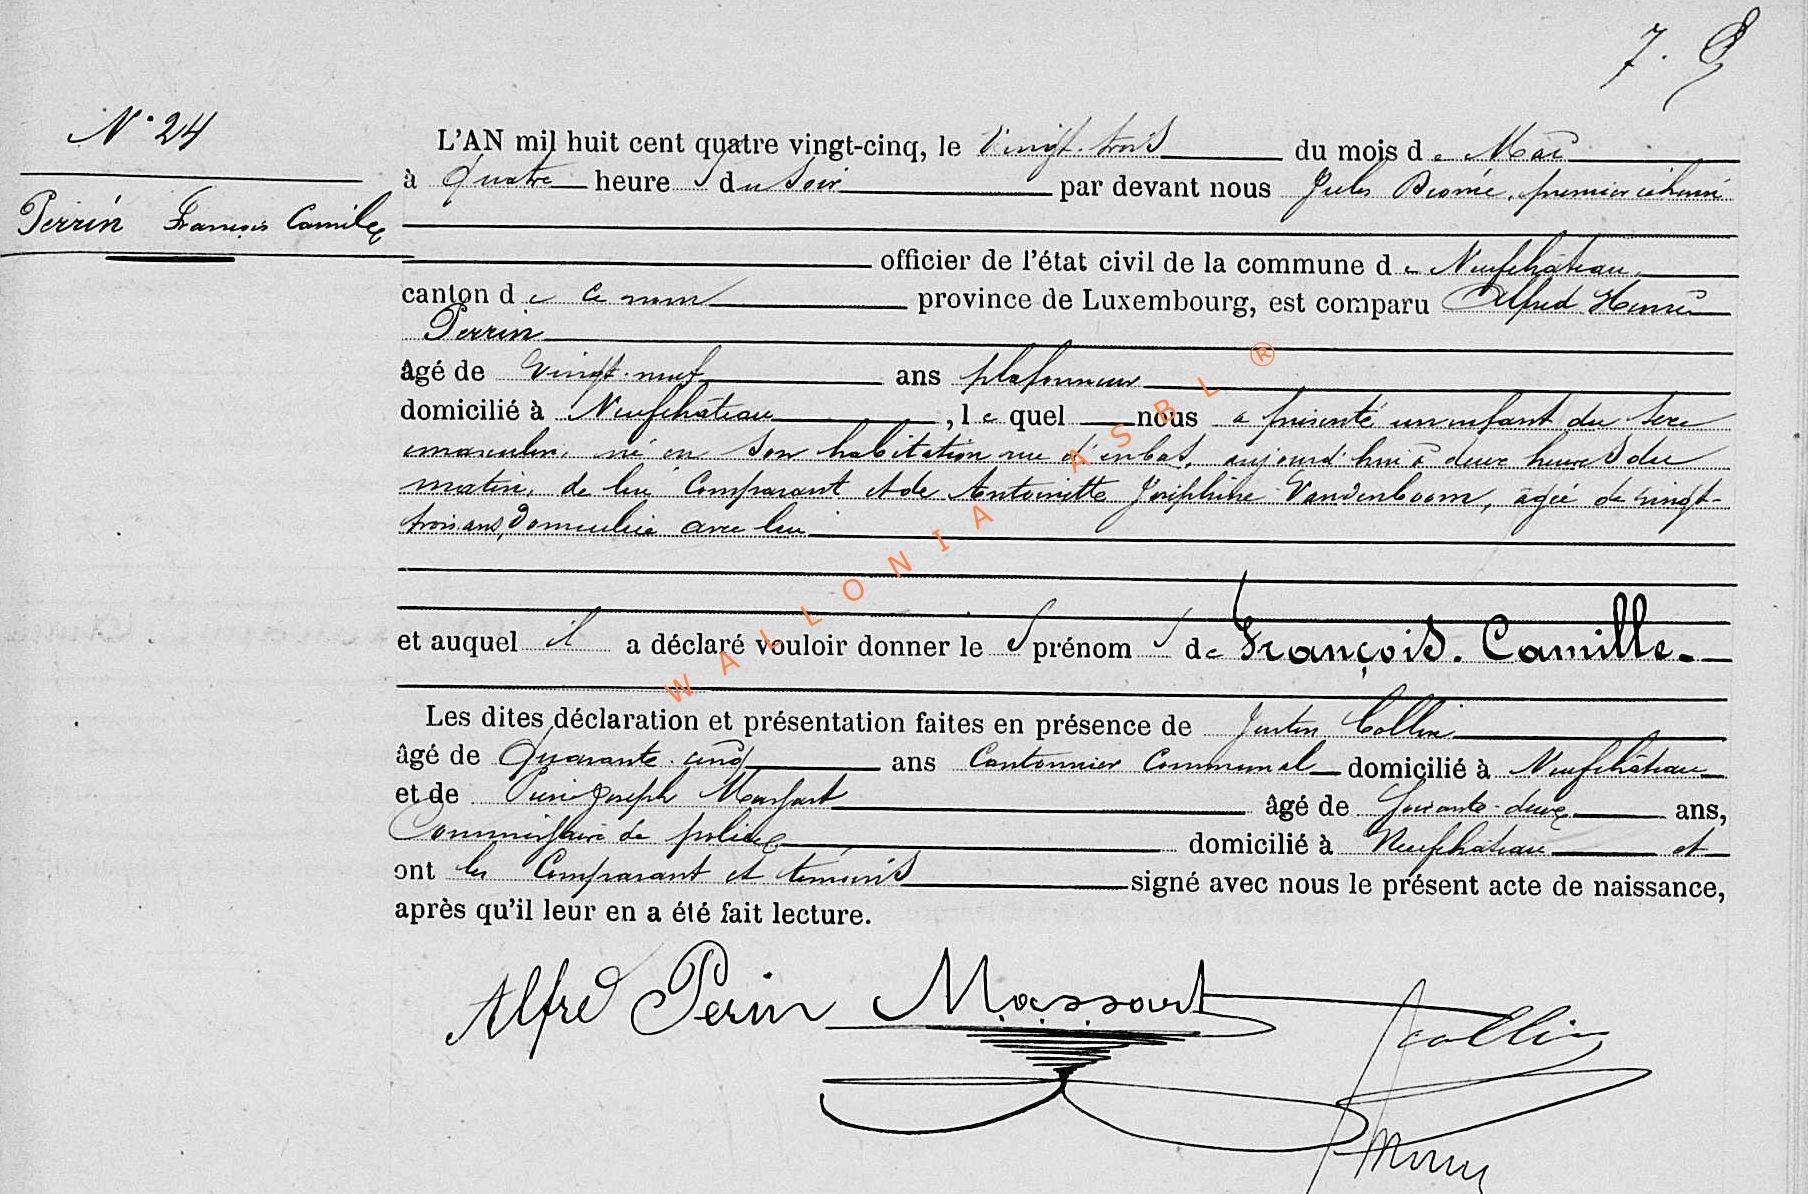 7.
N° 24
Perrin François Camille
L'AN mil huit cent quatre vingt-cinq, le vingt-trois du mois de Mai
à quatre heures du soir par devant nous Jules premier échevin
officier de l'état civil de la commune de Neufchâteau
canton de ce nom province de Luxembourg, est comparu Alfred Henri
Perrin
âgé de vingt-neuf ans plafonneur
domicilié à Neufchâteau, lequel nous a présenté un enfant du sexe
masculin, né en son habitation rue d'enbas, aujourd'hui à deux heures du
matin, de lui comparant et de Antoinette Joséphine Vandenboom, âgée de vingt-
trois ans, domiciliée avec lui
et auquel il a déclaré vouloir donner les prénoms de François. Camille.
Les dites déclaration et présentation faites en présence de Justin Collin
âgé de Quarante-cinq ans Cantonnier Communal domicilié à Neufchâteau
et de Pierre Joseph Massart âgé de soixante-deux ans,
Commissaire de police domicilié à Neufchâteau et
ont les Comparant et témoins signé avec nous le présent acte de naissance,
après qu'il leur en a été fait lecture.
Alfred Perin Massart Jcollin
WALLONIA ASBL ®